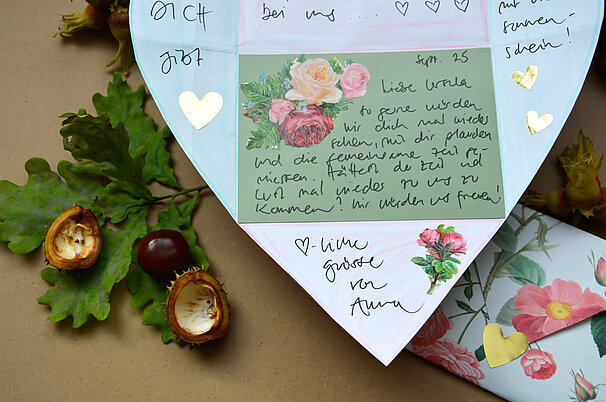 DICH
gibt
bei uns ....
sonnen-
schein!
Sept. 25
Liebe Ursula
so gerne würden
wir dich mal wieder
sehen, mit dir plaudern
und die gemeinsame Zeit ge-
niessen. Hättest du Zeit und
Lust mal wieder zu uns zu
kommen? Wir würden uns freuen!
♡-liche
grüsse
von
Anna